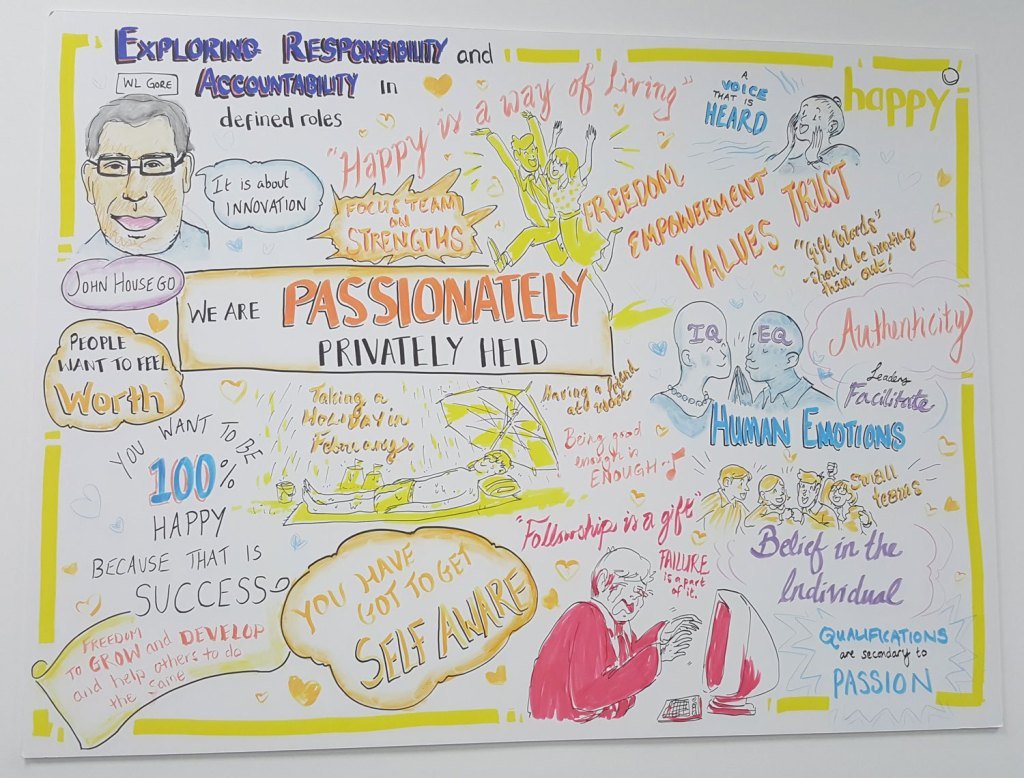 EXPLORING RESPONSIBILITY and
ACCOUNTABILITY in
defined roles
WL GORE
It is about
INNOVATION
JOHN HOUSEGO
"Happy is a way of Living"
FOCUS TEAM
ON
STRENGTHS
A
VOICE
THAT IS
HEARD
happy
FREEDOM
EMPOWERMENT
VALUES TRUST
"Gift Words"
should be handing
them out!
WE ARE PASSIONATELY
PRIVATELY HELD
PEOPLE
WANT TO FEEL
Worth
IQ EQ
HUMAN EMOTIONS
Authenticity
Leaders
Facilitate
Taking a
HOLIDAY in
February
Having a friend
at work
Being good
enough is
ENOUGH
YOU WANT TO BE
100%
HAPPY
BECAUSE THAT IS
SUCCESS
small
teams
"Followship is a gift"
FAILURE
is a part
of it.
Belief in the
Individual
YOU HAVE
GOT TO GET
SELF AWARE
FREEDOM
TO GROW and DEVELOP
and help others to do
the same
QUALIFICATIONS
are secondary to
PASSION